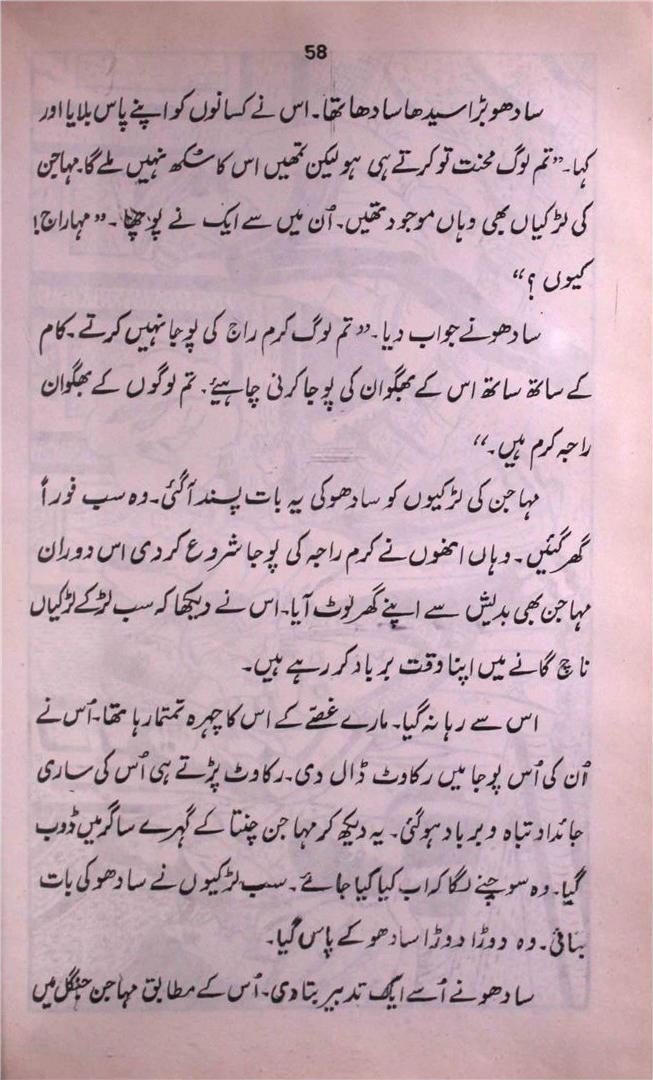 58
سادھو بڑا سیدھا سادھا تھا۔ اس نے کسانوں کو اپنے پاس بلایا اور
کہا۔ ”تم لوگ محنت تو کرتے ہی ہو لیکن تمھیں اس کا سُکھ نہیں ملے گا۔ مہاجن
کی لڑکیاں بھی وہاں موجود تھیں۔ اُن میں سے ایک نے پوچھا۔ ”مہاراج!
کیوں؟“
سادھو نے جواب دیا۔ ”تم لوگ کرم راج کی پوجا نہیں کرتے۔ کام
کے ساتھ ساتھ اس کے بھگوان کی پوجا کرنی چاہیئے۔ تم لوگوں کے بھگوان
راجہ کرم ہیں۔“
مہاجن کی لڑکیوں کو سادھو کی یہ بات پسند آگئی۔ وہ سب فوراً
گھر گئیں۔ وہاں انھوں نے کرم راجہ کی پوجا شروع کر دی اس دوران
مہاجن بھی بدیش سے اپنے گھر لوٹ آیا۔ اس نے دیکھا کہ سب لڑکے لڑکیاں
ناچ گانے میں اپنا وقت برباد کر رہے ہیں۔
اس سے رہا نہ گیا۔ مارے غصّے کے اس کا چہرہ تمتما رہا تھا۔ اُس نے
اُن کی اُس پوجا میں رکاوٹ ڈال دی۔ رکاوٹ پڑتے ہی اُس کی ساری
جائداد تباہ و برباد ہوگئی۔ یہ دیکھ کر مہاجن چنتا کے گہرے ساگر میں ڈوب
گیا۔ وہ سوچنے لگا کہ اب کیا کیا جائے۔ سب لڑکیوں نے سادھو کی بات
بتائی۔ وہ دوڑا دوڑا سادھو کے پاس گیا۔
سادھو نے اُسے ایک تدبیر بتا دی۔ اُس کے مطابق مہاجن جنگل میں